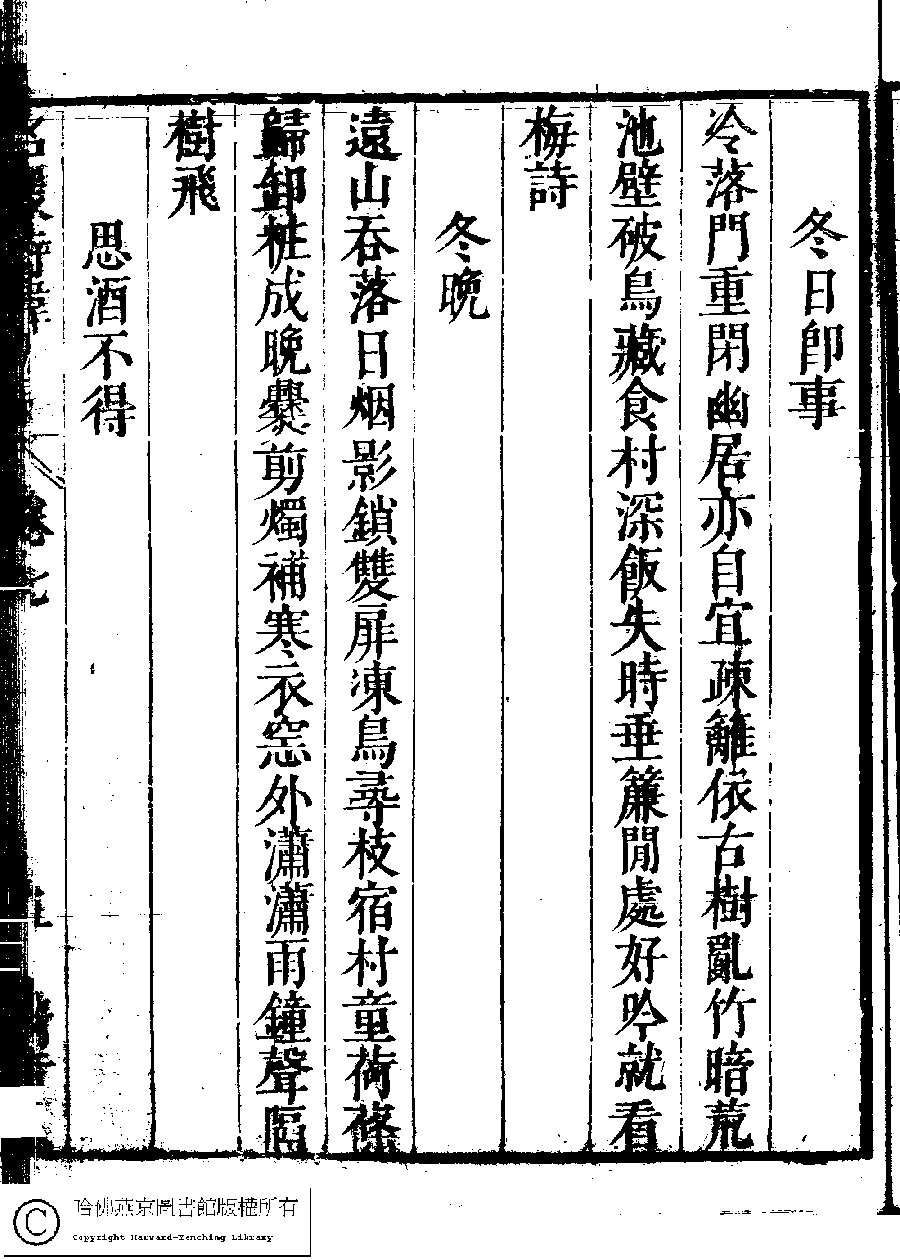 冬日即事
冷落門重閉幽居亦自宜疎籬依古樹亂竹暗荒
池壁破鳥藏食村深飯失時垂簾閒處好吟就看
梅詩
冬晚
遠山吞落日烟影鎖雙扉凍鳥尋枝宿村童荷蓧
歸卸粧成晚爨剪燭補寒衣窓外瀟瀟雨鐘聲隔
樹飛
思酒不得
卷七
哈佛燕京圖書館版權所有
Copyright Harvard-Yenching Library